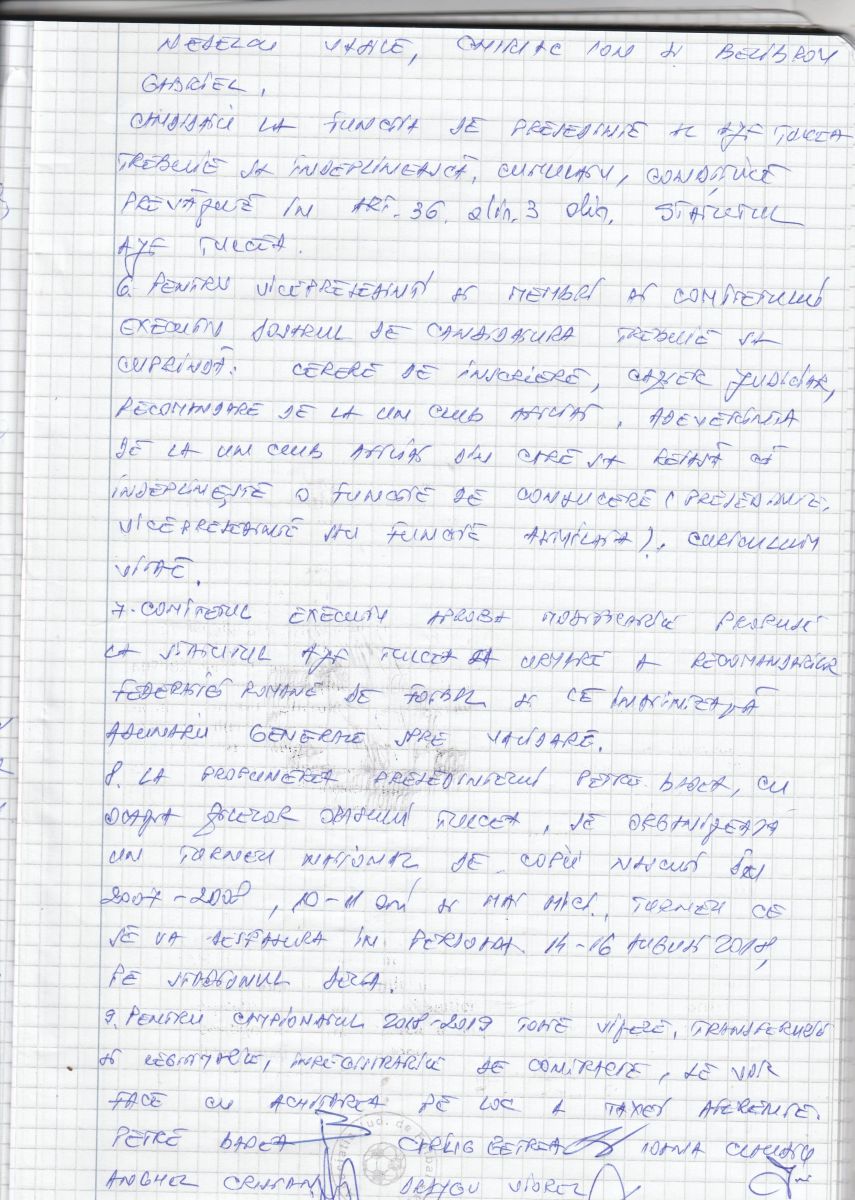 NEDELCU VASILE, CHIRIAC ION SI
GABRIEL.
CANDIDATII LA FUNCTIA DE PRESEDINTE AL AJF TULCEA
TREBUIE SA ÎNDEPLINEASCĂ, CUMULATIV, CONDIȚIILE
PREVĂZUTE IN ART. 36, alin. 3 din STATUTUL
AJF TULCEA.
6. PENTRU VICEPRESEDINTI SI MEMBRI AI COMITETULUI
EXECUTIV DOSARUL DE CANDIDATURA TREBUIE SA
CUPRINDĂ: CERERE DE INSCRIERE, CAZIER JUDICIAR,
RECOMANDARE DE LA UN CLUB AFILIAT, ADEVERINTA
DE LA UN CLUB AFILIAT DIN CARE SA REIASĂ CĂ
INDEPLINEȘTE O FUNCTIE DE CONDUCERE (PRESEDINTE,
VICEPRESEDINTE SAU FUNCTIE ASIMILATA), CURICULUM
VITAE.
7. COMITETUL EXECUTIV APROBA MODIFICARILE PROPUSE
LA STATUTUL AJF TULCEA CA URMARE A RECOMANDARILOR
FEDERATIEI ROMANE DE FOTBAL SI CE INAINTEAZĂ
ADUNARII GENERALE SPRE VALIDARE.
8. LA PROPUNEREA PRESEDINTELUI PETRE BADEA, CU
OCAZIA ZILELOR ORASULUI TULCEA, SE ORGANIZEAZĂ
UN TURNEU NATIONAL DE COPII NASCUTI ÎN
2007-2008, 10-11 ANI SI MAI MICI, TURNEU CE
SE VA DESFASURA IN PERIOADA 14-16 AUGUST 2018,
PE STADIONUL DELTA.
9. PENTRU CAMPIONATUL 2018-2019 TOATE VIZELE, TRANSFERURILE
SI LEGITIMARILE, INREGISTRARILE DE CONTRACTE, SE VOR
FACE CU ACHITAREA PE LOC A TAXEI AFERENTE.
PETRE BADEA CARLIG PETREA IOANA
ANGHEL CRISTIAN DRAGU VIOREL